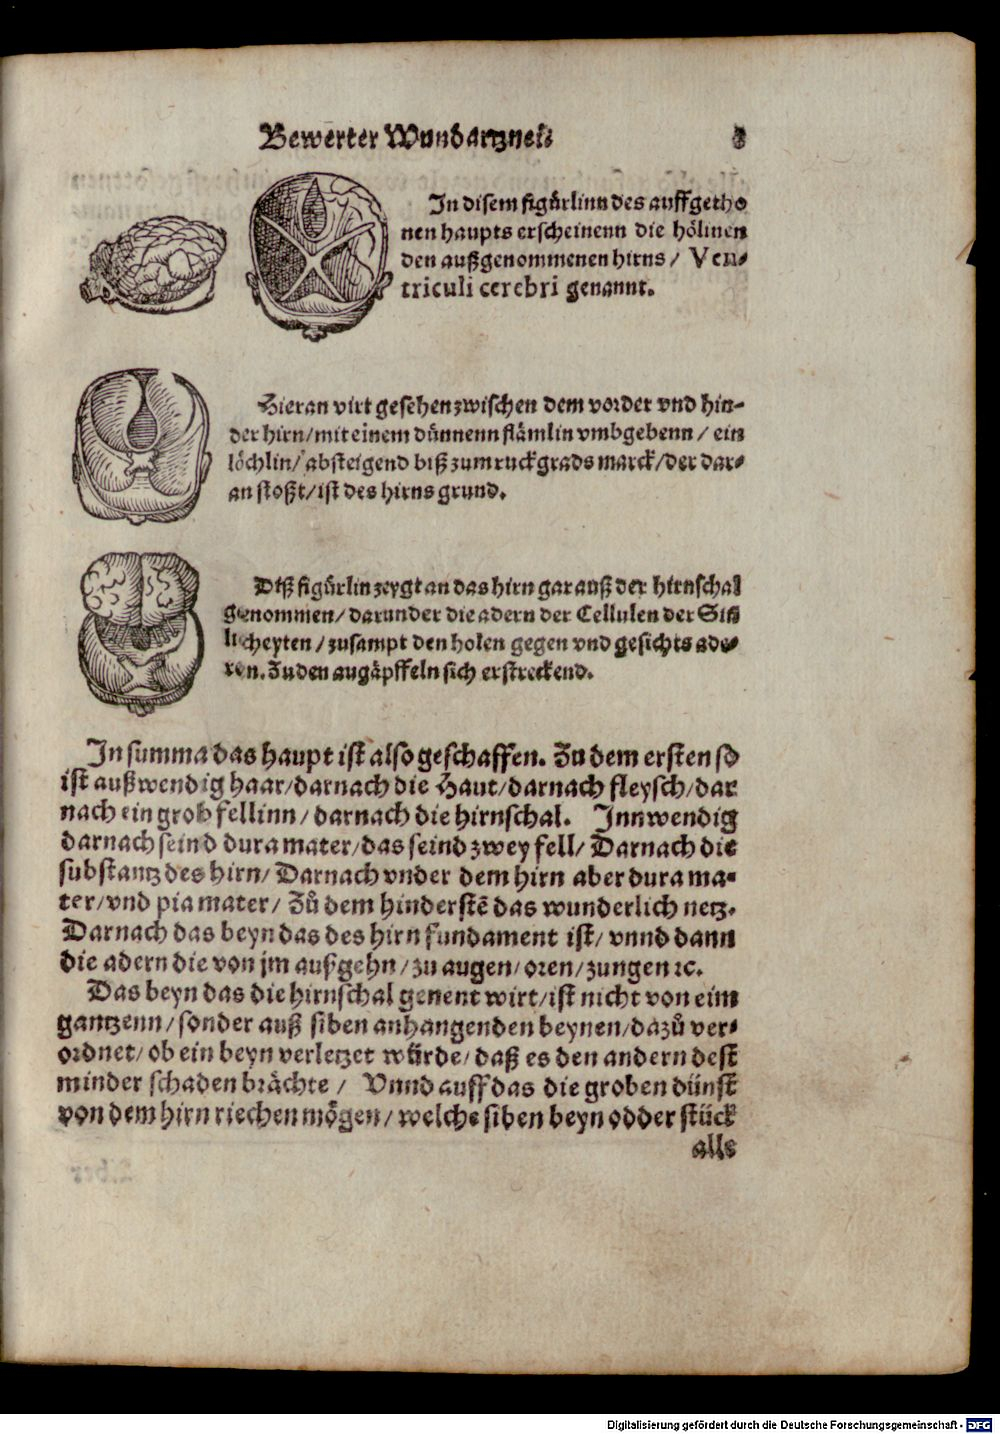 Bewerter Wundartznei.
In disem figürlinn des auffgetho
nen haupts erscheinenn die hölinen
den außgenommenen hirns / Ven-
triculi cerebri genannt.
Hieran virt gesehen zwischen dem vorder vnd hin-
der hirn/mit einem dünnenn flämlin vmbgebenn / ein
löchlin/ absteigend biß zum ruckgrads marck/der dar-
an stoßt/ist des hirns grund.
Diß figürlin zeygt an das hirn gar auß der hirnschal
genommen/ darunder die adern der Cellulen der Sin
licheyten / zusampt den holen gegen vnd gesichts ade-
ren. Zu den augäpffeln sich erstreckend.
In summa das haupt ist also geschaffen. Zu dem ersten so
ist außwendig haar/darnach die Haut/darnach fleysch/dar
nach ein grob fellinn/ darnach die hirnschal. Innwendig
darnach seind dura mater/das seind zwey fell/ Darnach die
substantz des hirn/ Darnach vnder dem hirn aber dura ma-
ter/vnd pia mater/ Zů dem hinderstẽ das wunderlich netz.
Darnach das beyn das des hirn fundament ist/ vnnd dann
die adern die von jm außgehn/zu augen/oren/zungen ꝛc.
Das beyn das die hirnschal genent wirt/ist nicht von eim
gantzenn/sonder auß siben anhangenden beynen/dazů ver-
ordnet/ob ein beyn verletzet würde/daß es den andern dest
minder schaden brächte / Vnnd auff das die groben dünst
von dem hirn riechen mögen/ welche siben beyn odder stück
alle
Digitalisierung gefördert durch die Deutsche Forschungsgemeinschaft - DFG